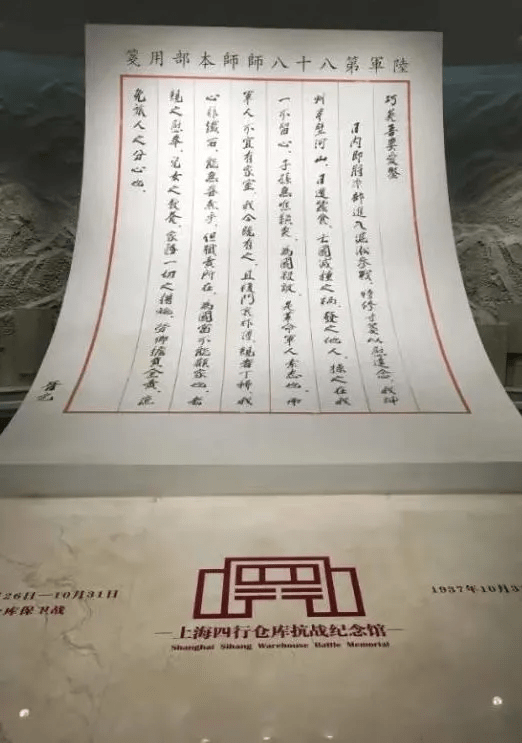 陸軍第八十八師師本部用箋
巧英吾妻愛鑒
日内即將率部進入滬淞參戰，特修寸箋以慰遠念。我神
州半壁河山，日遭蠶食，亡國滅種之禍，發之他人，操之在我
一不留心，子孫無噍類矣。為國殺敵，是革命軍人素志也，而
軍人不宜有家室，我今既有之，且復門衰祚薄，親者丁稀，我
心非鐵石，能無眷然乎，但職責所在，為國當不能顧家也，老
親之慰奉，兒女之教養，家務一切之措施，勞卿擔負全責，庶
免旅人之分心也。
晋元
26日—10月31日
库保卫战
1937年10月3
上海四行仓库抗战纪念馆
Shanghai Sihang Warehouse Battle Memorial